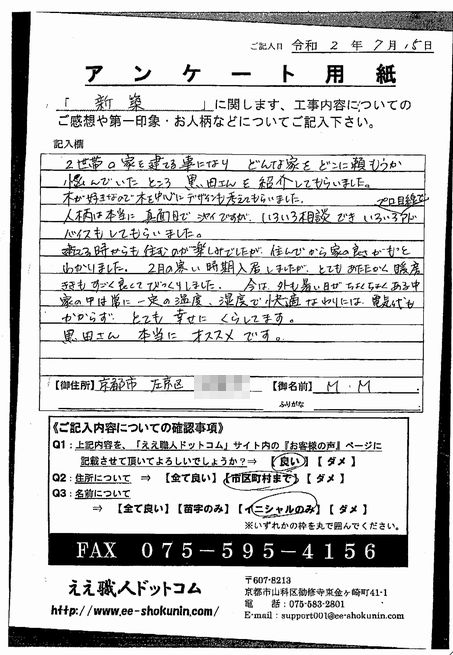 ご記入日 令和 2 年 7月 15日
アンケート用紙
「 新築 」に関します、工事内容についての
ご感想や第一印象・お人柄などについてご記入下さい。
記入欄
2世帯の家を建てる事になり どんな家をどこに頼もうか
悩んでいたところ 黒田さんを紹介してもらいました。
木が好きなので木を中心にデザインも考えてもらいました。
プロ目線で
人柄は本当に真面目で シャイですが、いろいろ相談でき いろいろアド
バイスもしてもらいました。
建てる時からも住むのが楽しみでしたが、住んでから家の良さがもっと
わかりました。 2月の寒い時期入居しましたが、とてもあたたかく 暖房
ききもすごく良くてびっくりしました。 今は、外も暑い日がちょくちょくある中
家の中は常に一定の温度、湿度で快適なわりには 電気代も
かからず、とても幸せに くらしてます。
黒田さん 本当に オススメです。
【御住所】京都市 左京区
【御名前】 M.M
ふりがな
《ご記入内容についての確認事項》
Q1：上記内容を、「ええ職人ドットコム」サイト内の『お客様の声』ページに
記載させて頂いてよろしいでしょうか？⇒ 【 良い 】【 ダメ 】
Q2：住所について ⇒ 【全て良い】【市区町村まで】【 ダメ 】
Q3：名前について
⇒ 【全て良い】【苗字のみ】【イニシャルのみ】【 ダメ 】
※いずれかの枠を丸で囲んでください。
FAX 075-595-4156
ええ職人ドットコム
http://www.ee-shokunin.com/
〒607-8213
京都市山科区勧修寺東金ヶ崎町41-1
電 話：075-583-2801
E-mail：support001@ee-shokunin.com